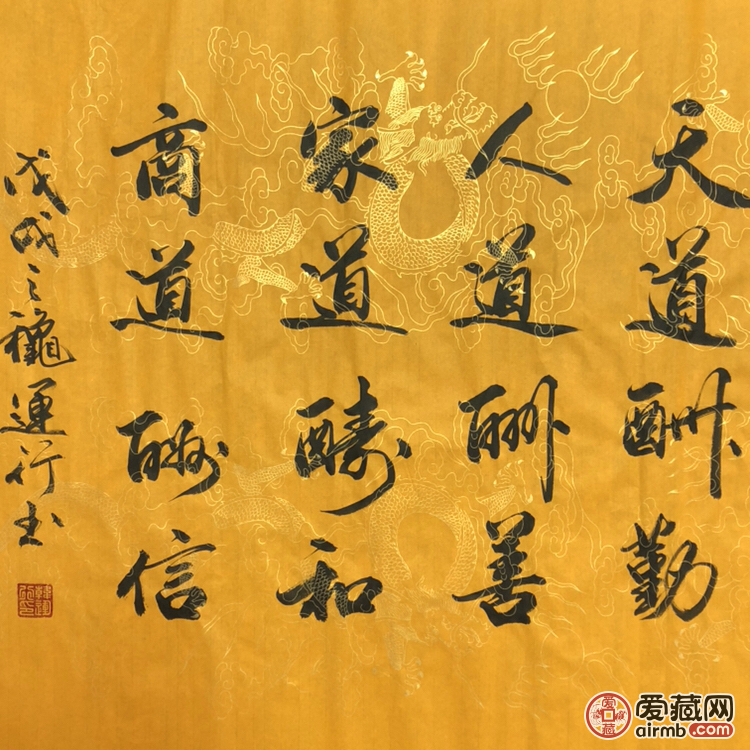 天道酬勤
人道酬善
家道醻和
商道酧信
戊戌之穐運行书
爱藏网
airmb.com